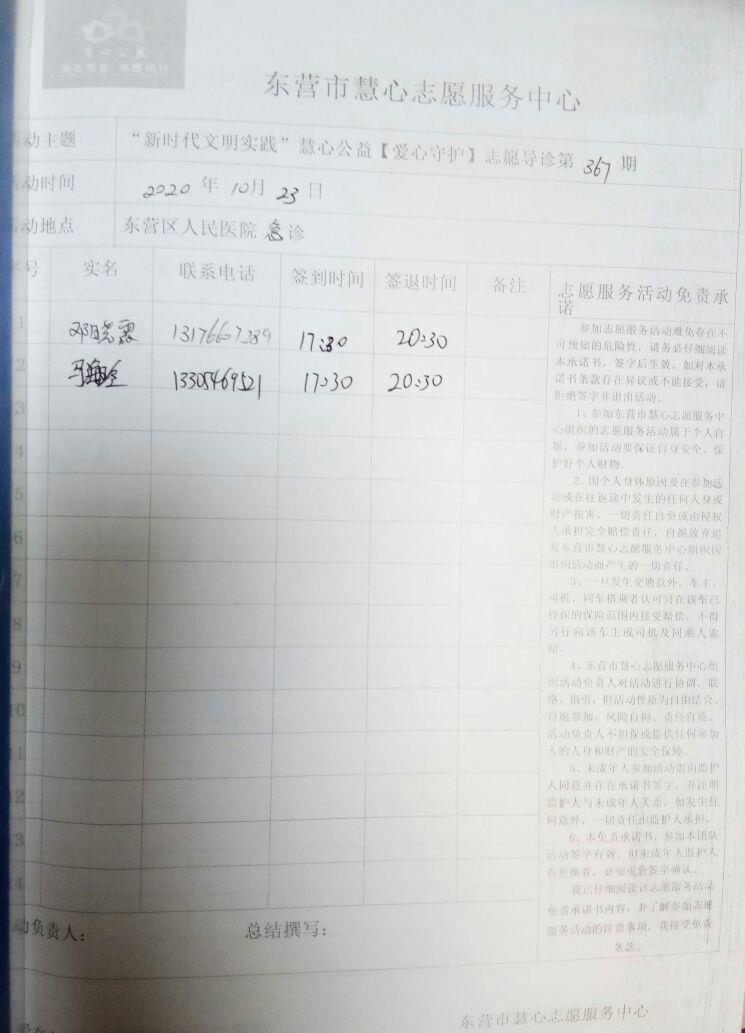 慧心公益
东营市慧心志愿服务中心
活动主题 “新时代文明实践”慧心公益【爱心守护】志愿导诊第 367 期
活动时间 2020 年 10月 23 日
活动地点 东营区人民医院 急诊
号 实名 联系电话 签到时间 签退时间 备注
1 邓晓霞 13176607289 17:30 20:30
2 13305469521 17:30 20:30
3
4
5
6
7
8
9
10
11
12
13
14
志愿服务活动免责承
诺
参加志愿服务活动难免存在不
可预知的危险性，请务必仔细阅读
本承诺书，签字后生效。如对本承
诺书条款存在异议或不能接受，请
拒绝签字并退出活动。
1、参加东营市慧心志愿服务中
心组织的志愿服务活动属于个人自
愿，参加活动要保证自身安全、保
护好个人财物。
2、因个人身体原因及在参加活
动或在往返途中发生的任何人身或
财产损害，一切责任自负或由侵权
人承担完全赔偿责任，自愿放弃追
究东营市慧心志愿服务中心组织因
组织活动而产生的一切责任。
3、一旦发生交通意外，车主、
司机、同车搭乘者认可只在该车已
投保的保险范围内接受赔偿，不得
另行向该车主或司机及同乘人索
赔。
4、东营市慧心志愿服务中心组
织活动负责人对活动进行协调、联
络、指引，但活动性质为自由结合、
自愿参加、风险自担、责任自负。
活动负责人不担保或提供任何参加
人的人身和财产的安全保障。
5、未成年人参加活动需由监护
人同意并在在承诺书签字，并注明
监护人与未成年人关系，如发生任
何意外，一切责任由监护人承担。
6、本免责承诺书，参加本团队
活动签字有效，但未成年人监护人
有更换者，必须重新签字确认。
我已仔细阅读该志愿服务活动
免责承诺书内容，并了解参加志愿
服务活动的注意事项，我接受免责
条款。
活动负责人： 总结撰写：
东营市慧心志愿服务中心